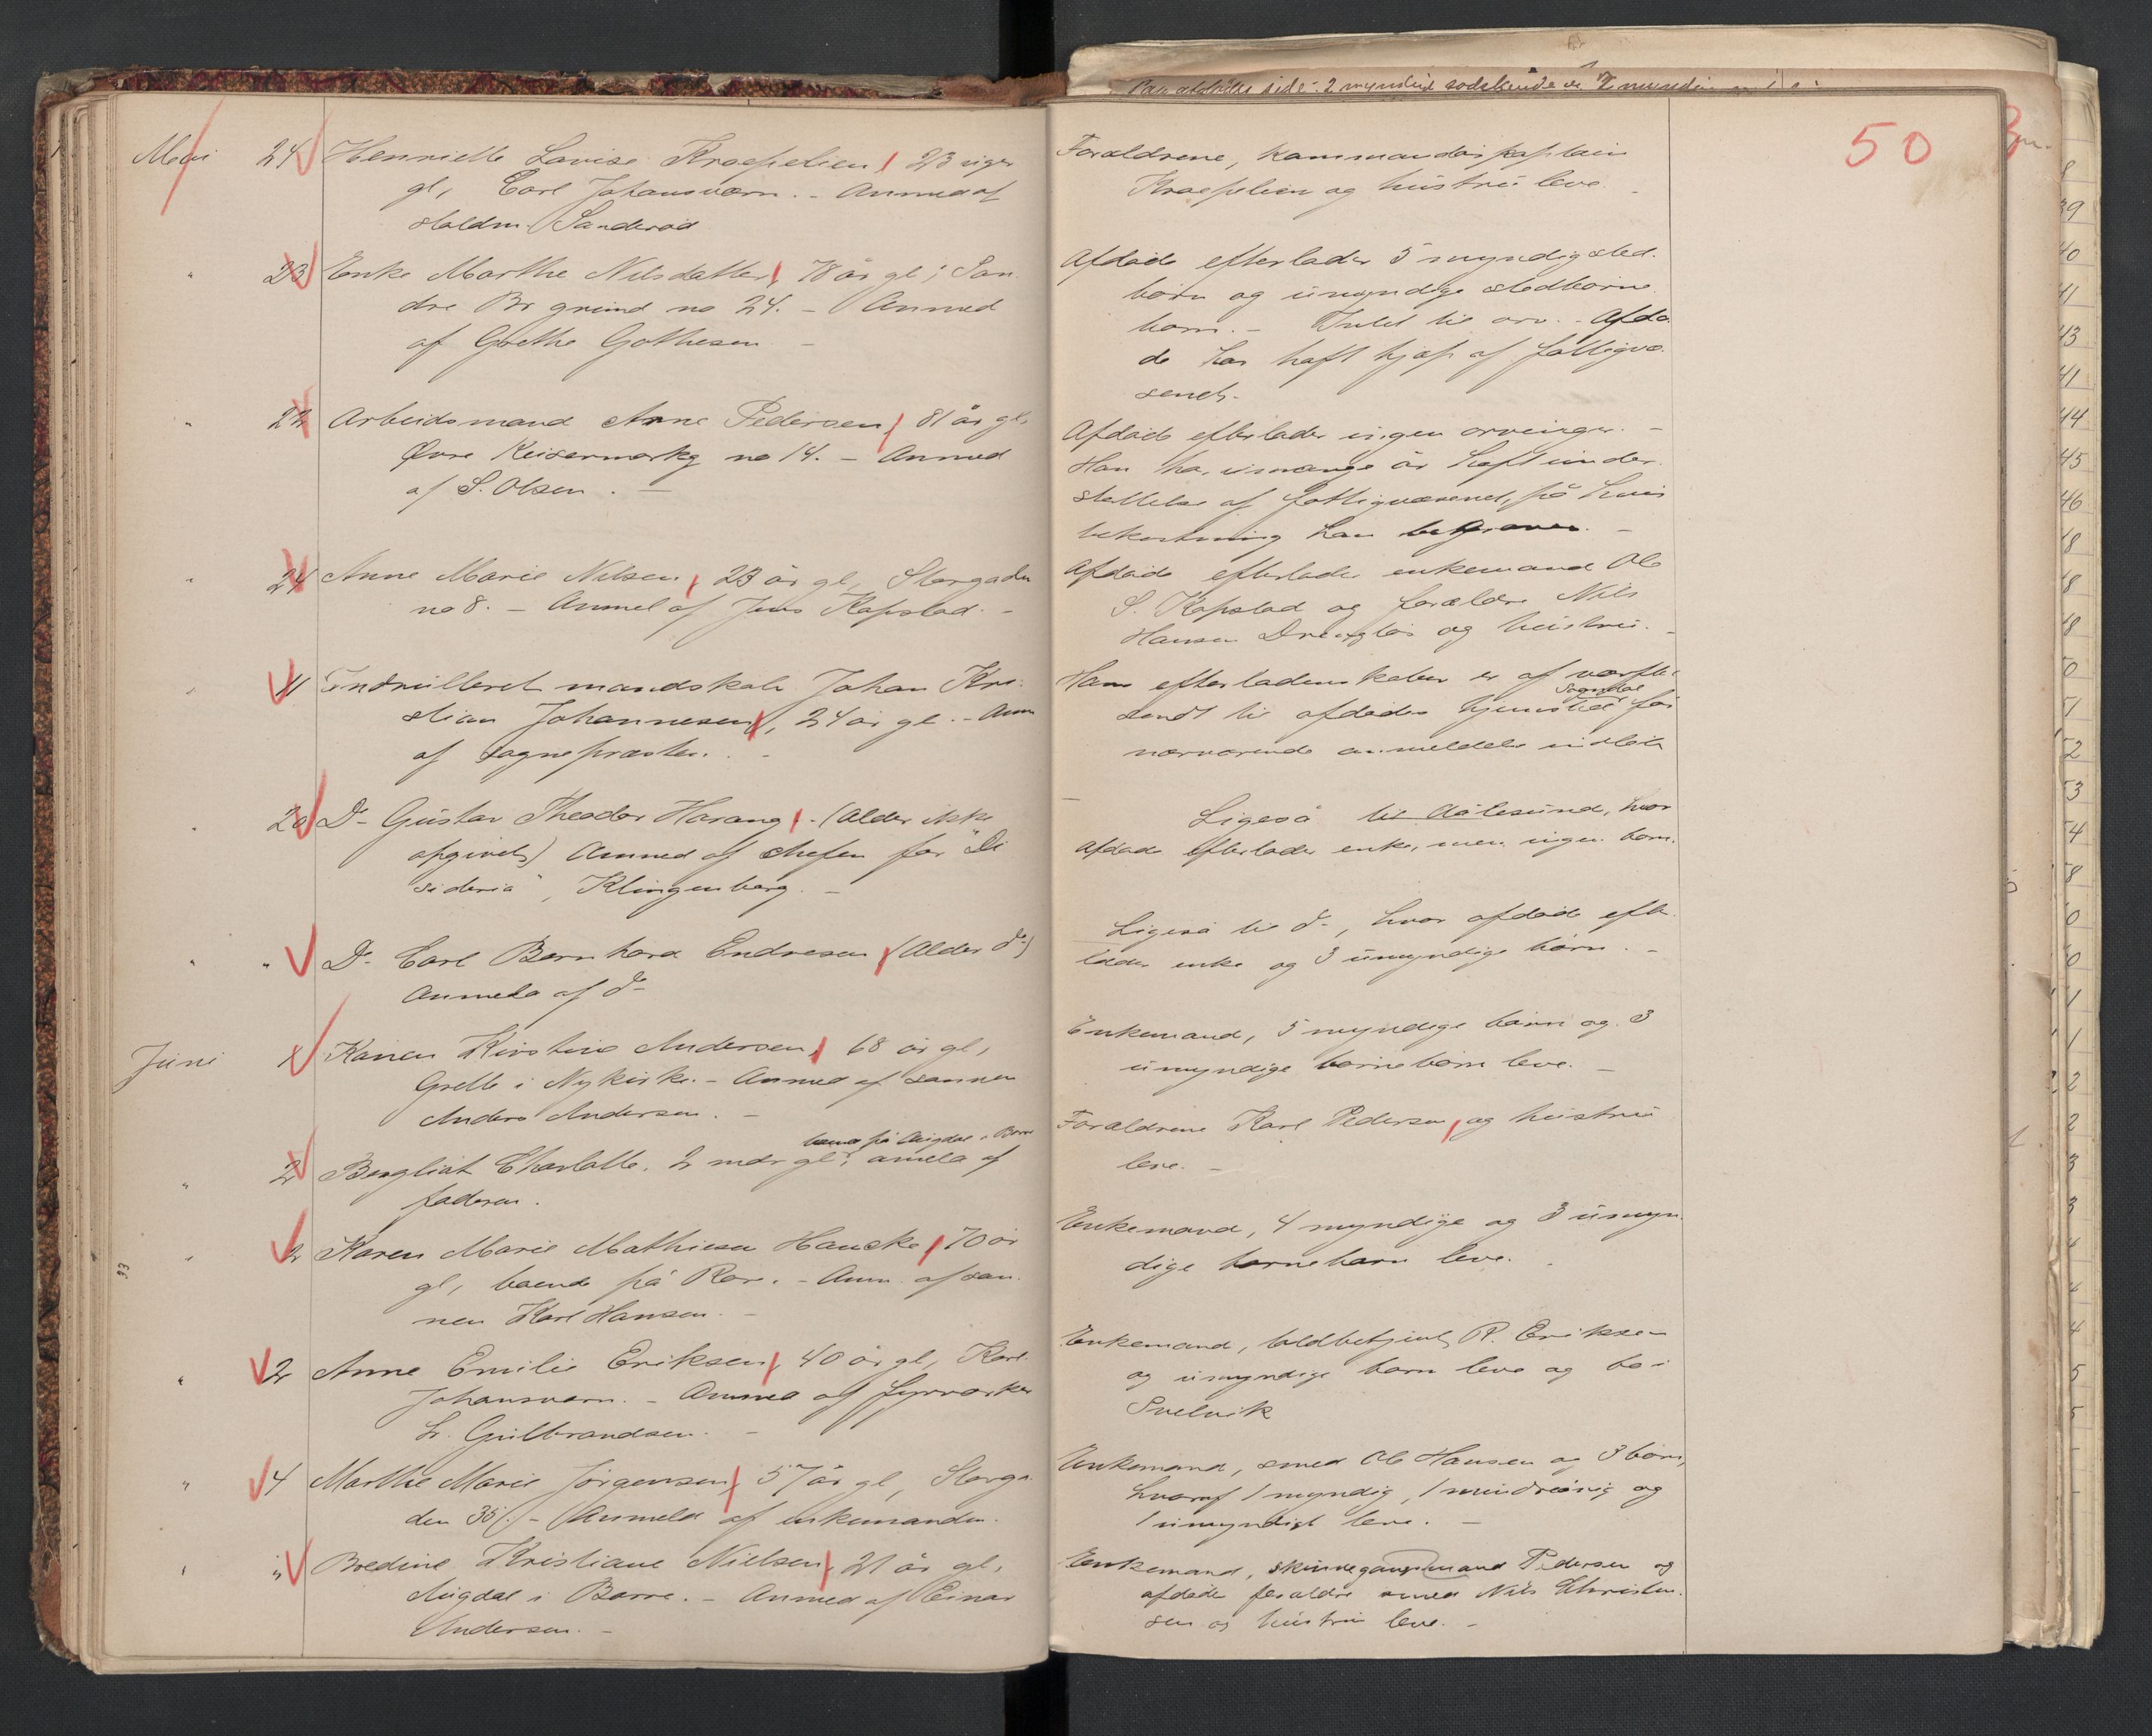 Mai 24 Henriette Lovise Kraepelien, 23 uger
gl, Carl Johansværn. - Anmed af
Haldm. Sanderød
" 23 Enke Marthe Nilsdatter, 78 år gl; Søn
dre Br grund no 24. - Anmed
af Grethe Gothesen. -
" 22 Arbeidsmand Arne Pedersen, 81 år gl,
Øvre Keisermarkg no 14. - Anmed
af S. Olsen. -
" 24 Anne Marie Nilsen, 23 år gl, Storgaden
no 8. - Anmel af Jens Kapstad. -
" 11 Indrulleret mandskab Johan Kri-
stian Johannesen, 24 år gl. - Anm
af sognepræsten. -
" 20 Do Gustav Theodor Harang. - (Alder ikke
opgivet) Anmed af chefen for "De
sideria", Klingenberg. -
" " Do Carl Bernhard Endresen (Alder do)
Anmeld af do
Juni 1 Karen Kirstine Andersen, 68 år gl,
Grette i Nykirke. - Anmed af sønnen
Anders Andersen. -
på Augdal i Borre
" 2 Bergliot Charlotte, 2 mdr gl, anmeld af
faderen.
" 2 Karen Marie Mathisen Hauske, 70 år
gl, boende på Rør. - Anm. af søn-
nen Karl Hansen. -
" 2 Anne Emilie Eriksen, 40 år gl, Karl
Johansværn. - Anmed af fyrværker
L. Gulbrandsen. -
" 4 Marthe Marie Jørgensen, 57 år gl, Storga
den 35. - Anmeld af enkemanden.
" " Bredine Kristiane Nielsen, 21 år gl,
Augdal i Borre. - Anmed af Einar
Andersen. -
33
Forældrene, kommandørkaptein
Kraepelien og hustru leve. -
Afdøde efterlader 5 myndig sted-
børn og umyndige stedbørns
børn. - Intet til arv. - Afdø
de har haft hjælp af fattigvæ-
senet. -
Afdøde efterlader ingen arvinger. -
Han har i mange år haft under
støttelse af fattigvæsenet, på hvis
bekostning han begraves. -
Afdøde efterlader enkemand Ole
S. Kapstad og forældre Nils
Hansen og hustru. -
Hans efterladenskaber er af værftet
Sogndal
sendt til afdødes hjemsted før
nærværende anmeldelse indløb
Ligeså til Aalesund, hvor
afdøde efterlader enke, men ingen børn.
Ligeså til do, hvor afdøde efter
lader enke og 3 umyndige børn. -
Enkemand, 5 myndige børn og 3
umyndige børnebørn leve. -
Forældrene Karl Pedersen, og hustru
leve. -
Enkemand, 4 myndige og 3 umyn
dige børnebørn leve. -
Enkemand, toldbetjent P. Eriksen
og umyndige børn leve og bo i
Svelvik
Enkemand, smed Ole Hansen og 3 børn,
hvoraf 1 myndig, 1 mindreårig og
1 umyndigt leve. -
Enkemand, skinnegangsmand Pedersen og
afdødes forældre smed Nils Christen
sen og hustru leve. -
50